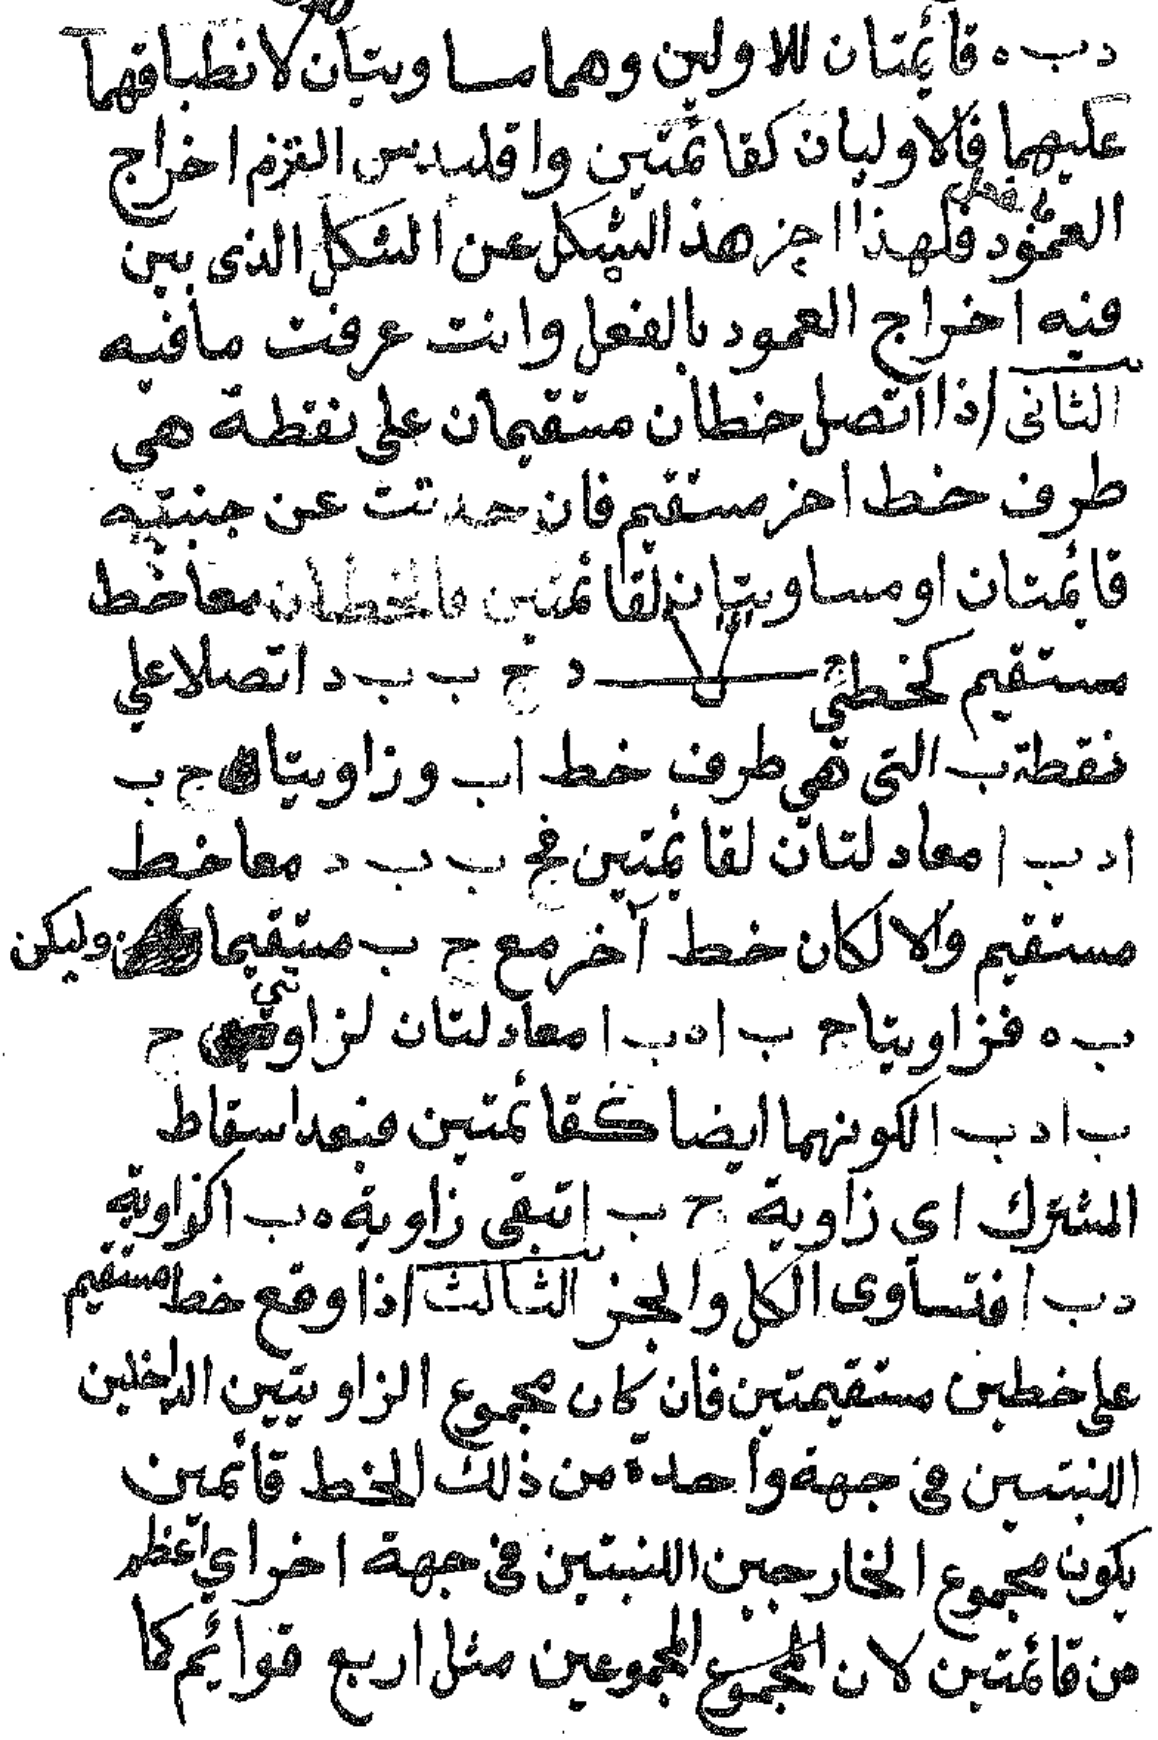 د ب ه قائمتان للاولين وهما مساويتان لانطباقهما
عليهما فالاوليان كقائمتين واقليدس التزم اخراج
العمود بالفعل فلهذا اخر هذ الشكل عن الشكل الذى بين
فيه اخراج العمود بالفعل وانت عرفت مافيه
الثانى اذا اتصل خطان مستقيمان على نقطة هي
طرف خط اخر مستقيم فان حدثت عن جنبتيه
قائمتان او مساويتان لقائمتين فالخطان معا خط
مستقيم كخطي ح ب ب د اتصلا علي
نقطة ب التى هي طرف خط ا ب وزاويتا ح ب
ا د ب ا معادلتان لقائمتين فح ب ب د معا خط
مستقيم والا لكان خط آخر مع ح ب مستقيما وليكن
ب ه فزاويتا ح ب ا ه ب ا معادلتان لزاويتي ح
ب ا د ب ا لكونهما ايضا كقائمتين فبعد اسقاط
المشترك اى زاوية ح ب ا تبقى زاوية ه ب ا كزاوية
د ب ا فتساوى الكل والجز الثالث اذا وقع خط مستقيم
على خطين مستقيمتين فان كان مجموع الزاويتين الداخلين
اللنتين في جهة واحدة من ذلك الخط قائمين
يكون مجموع الخارجين اللنتين في جهة اخراي اعظم
من قائمتين لان المجموع المجموعين مثل اربع قوائم كما